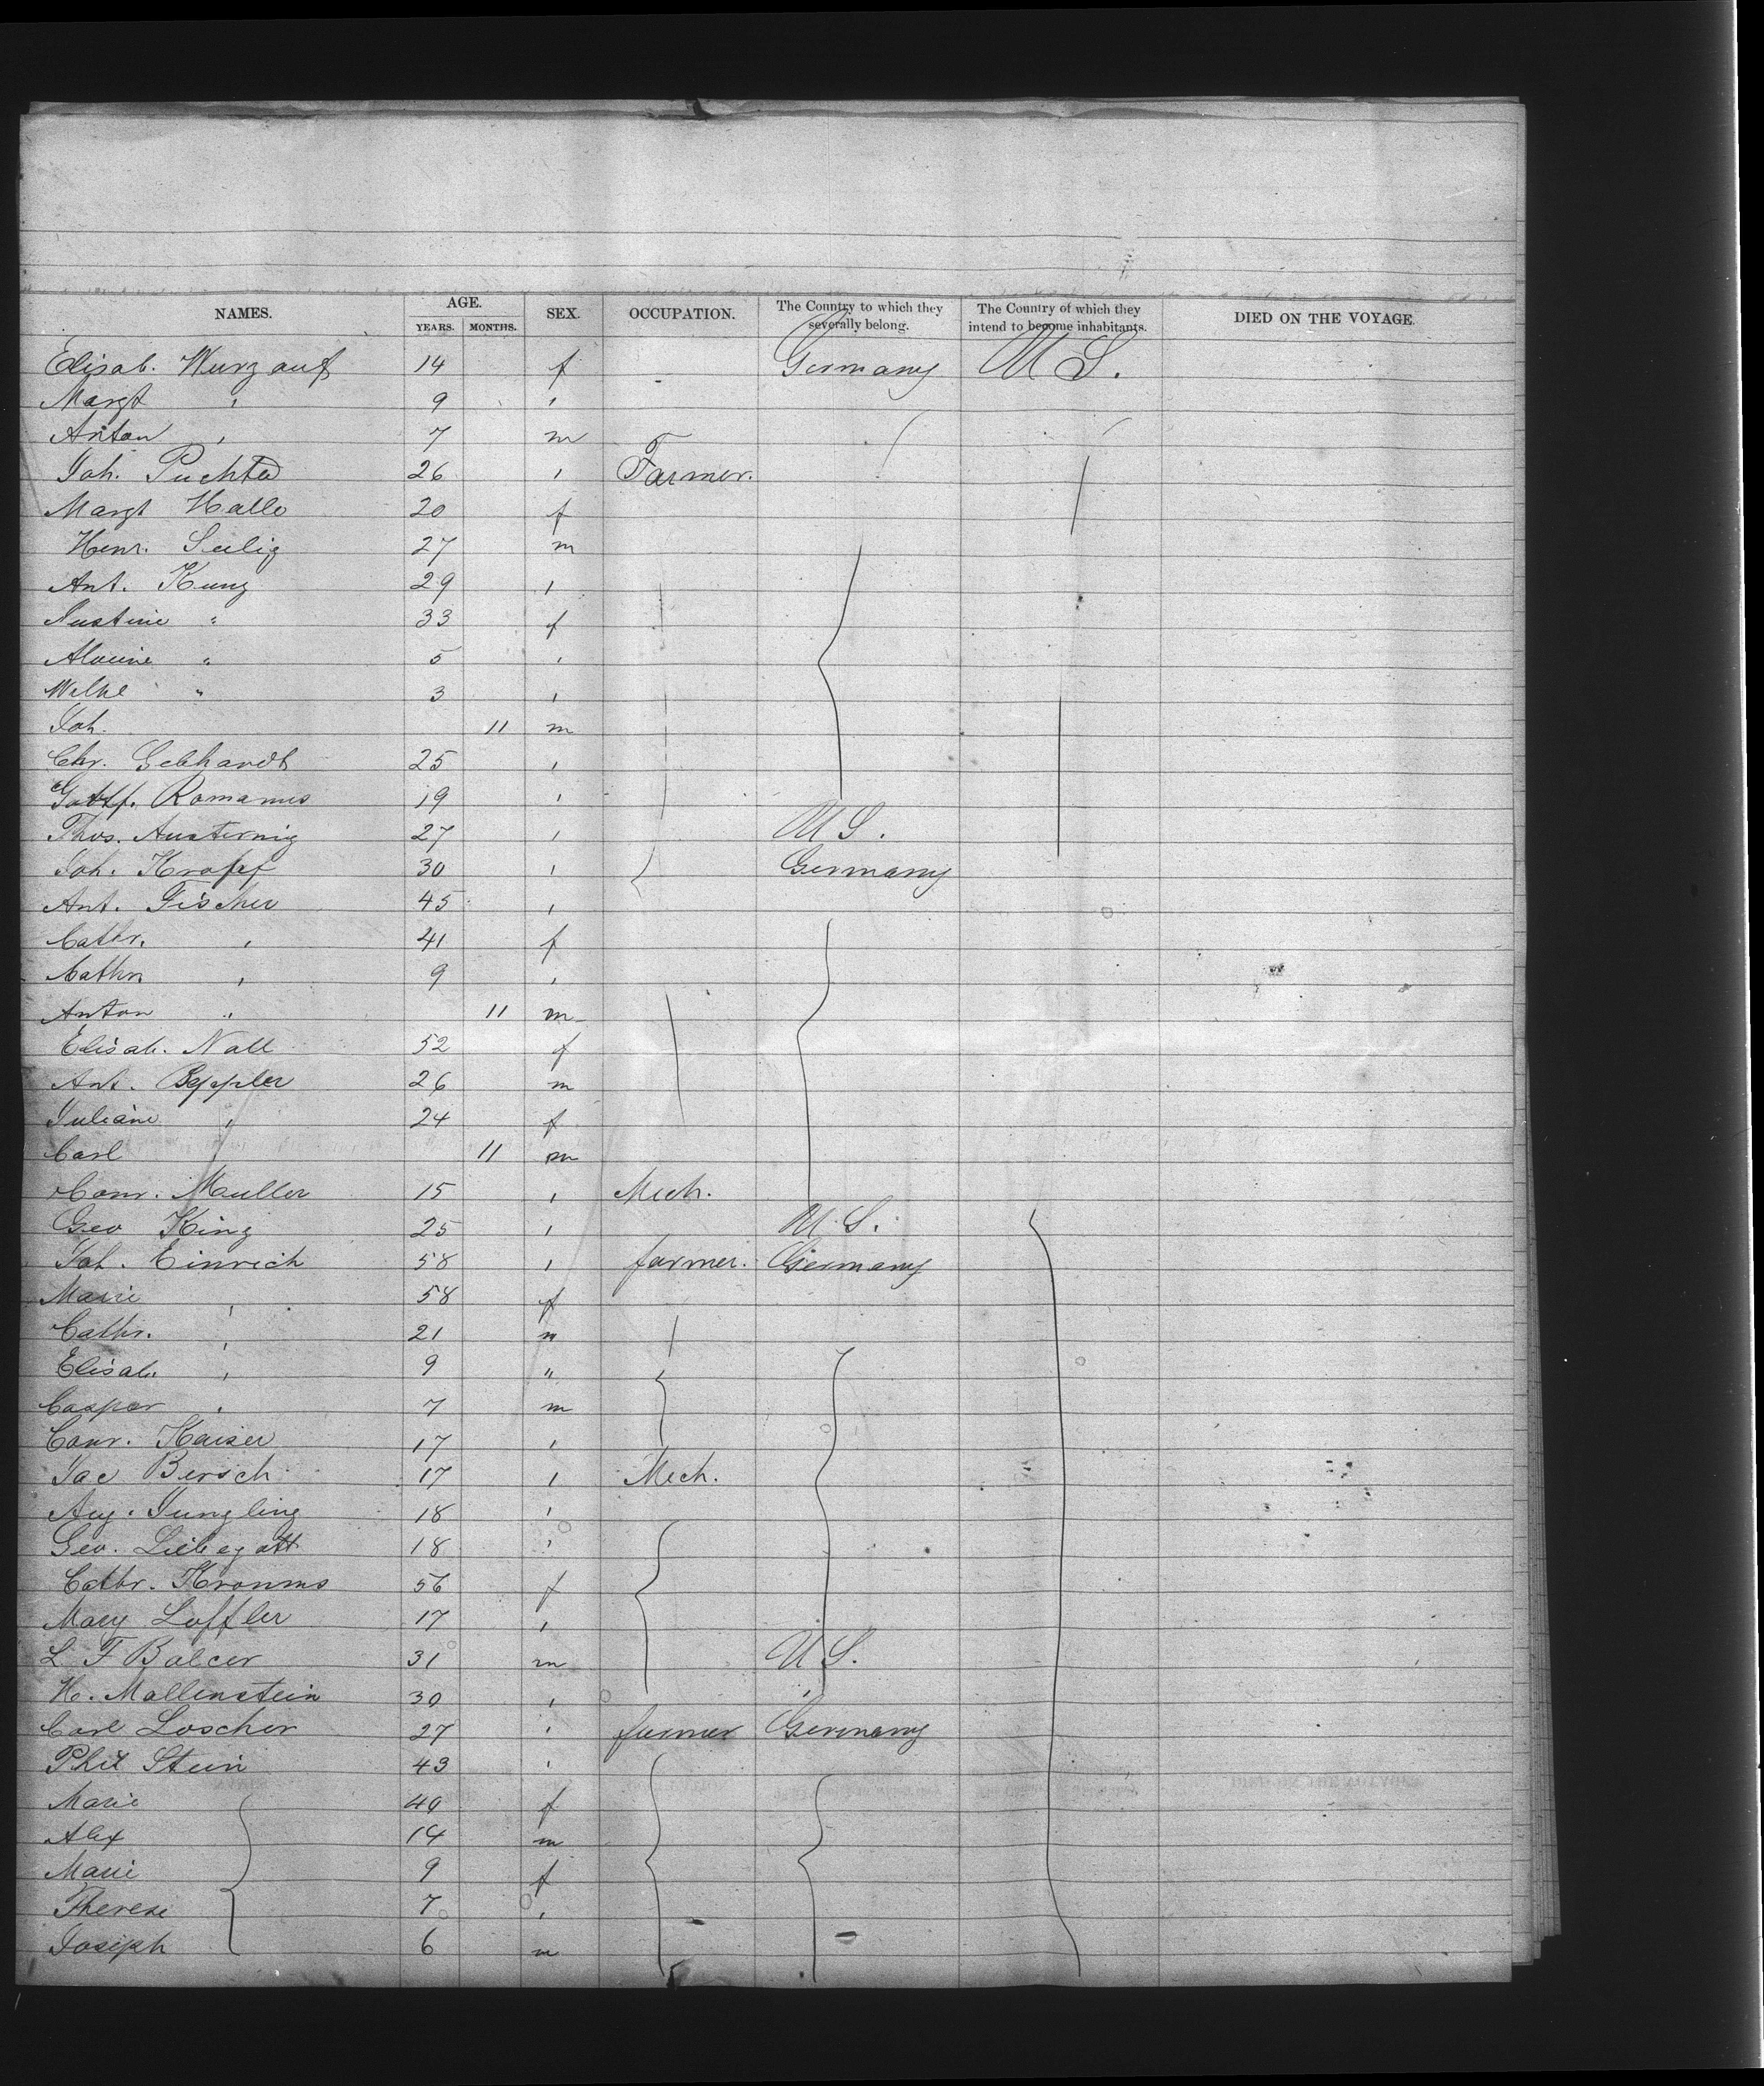 NAMES. AGE. YEARS. MONTHS. SEX. OCCUPATION. The Country to which they severally belong. The Country of which they intend to become inhabitants. DIED ON THE VOYAGE.
Elisab. Wurzauf 14 f Germany U S.
Margt " 9 "
Anton " 7 m
Joh. Puchta 26 " Farmer.
Margt Halle 20 f
Henr. Seelig 27 m
Ant. Kunz 29 "
Justine " 33 f
Alwine " 5 "
Wilhe " 3 "
Joh. 11 m
Chr. Gebhardt 25 "
Gottf. Romanus 19 "
Thos. Austernig 27 " U S.
Joh. Kropf 30 " Germany
Ant. Fischer 45 "
Cathr. " 41 f
Cathr. " 9 "
Anton " 11 m
Elisab. Nall 52 f
Ant. Beppler 26 m
Juliane " 24 f
Carl " 11 m
Conr. Muller 15 " Mech.
Geo King 25 " U. S.
Joh. Einrich 58 " farmer. Germany
Marie " 58 f
Cathr. " 21 "
Elisab. " 9 "
Caspar " 7 m
Conr. Kaiser 17 "
Jac Bersch 17 " Mech.
Aug. Jungling 18 "
Geo. Liebegott 18 "
Cathr. 56 f
Mary Loffler 17 "
L F Balcer 31 m U S.
H. Mollenstein 30 " "
Carl Loscher 27 " farmer Germany
Phil Stein 43 "
Marie 40 f
Alex 14 m
Marie 9 f
Therese 7 "
Joseph 6 m